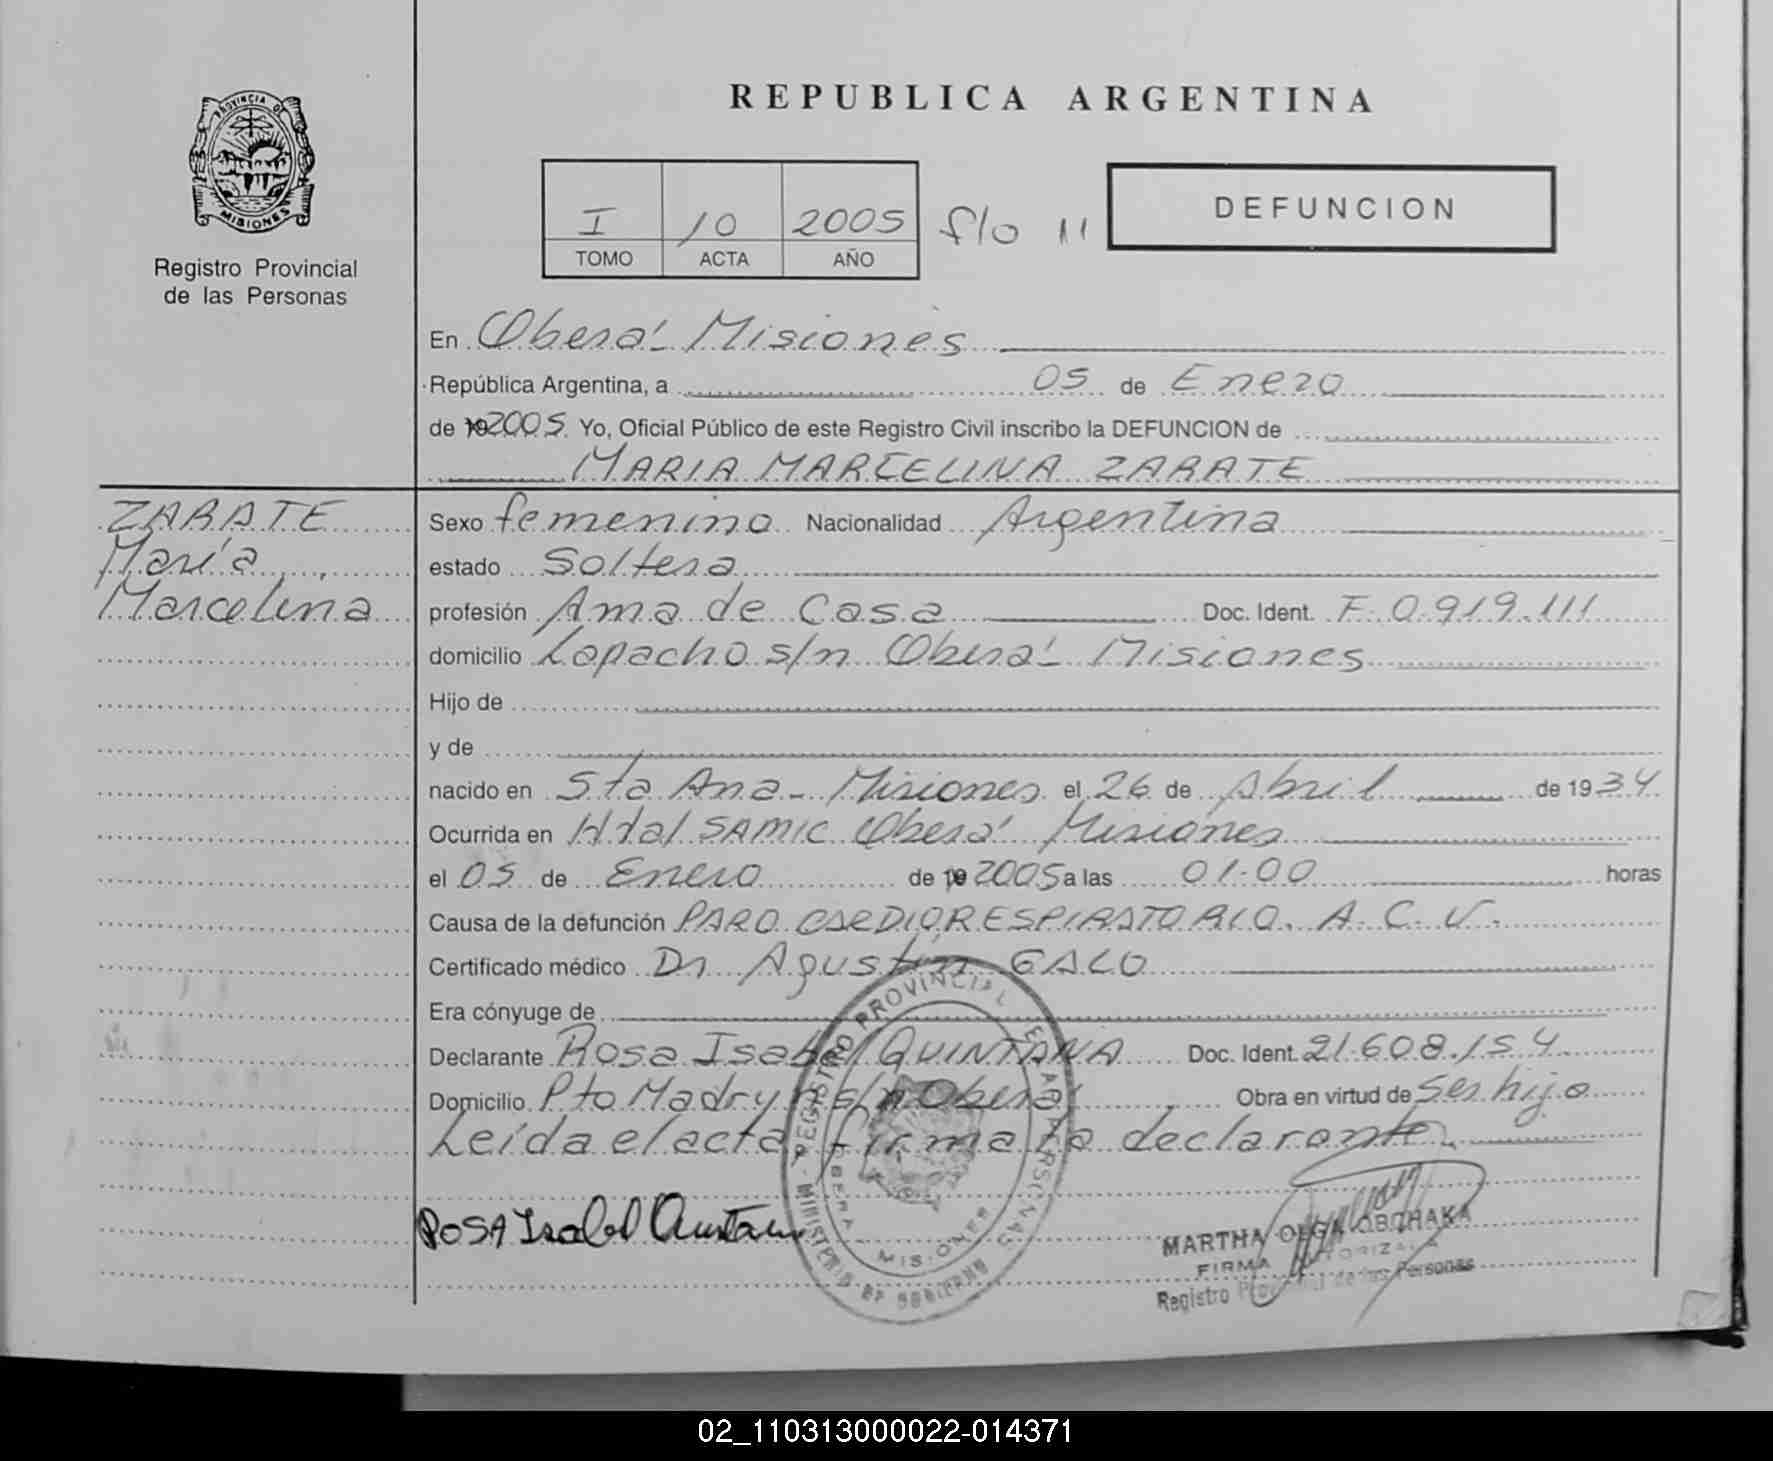 REPUBLICA ARGENTINA
PROVINCIA DE
MISIONES
Registro Provincial
de las Personas
I 10 2005 flo 11
TOMO ACTA AÑO
DEFUNCION
En Oberá - Misiones
República Argentina, a 05 de Enero
de 19 2005 Yo, Oficial Público de este Registro Civil inscribo la DEFUNCION de
MARIA MARCELINA ZARATE
ZARATE
María
Marcelina
Sexo femenino Nacionalidad Argentina
estado Soltera
profesión Ama de Casa Doc. Ident. F. 0.919.111
domicilio Lapacho s/n Oberá - Misiones
Hijo de
y de
nacido en Sta Ana - Misiones el 26 de Abril de 1934
Ocurrida en Htal SAMIC Oberá Misiones
el 05 de Enero de 19 2005 a las 01.00 horas
Causa de la defunción PARO CARDIORESPIRATORIO. A.C.V.
Certificado médico Dr Agustín GALO
Era cónyuge de
Declarante Rosa Isabel QUINTANA Doc. Ident. 21.608.154
Domicilio Pto Madryn s/n Oberá Obra en virtud de Ser hijo
Leída el acta firma la declarante.
ROSA Isabel Quintana
REGISTRO PROVINCIAL DE LAS PERSONAS
MINISTERIO DE GOBIERNO
OBERA
MISIONES
MARTHA OLGA OBCHAKA
FIRMA AUTORIZADA
Registro Provincial de las Personas
02_110313000022-014371